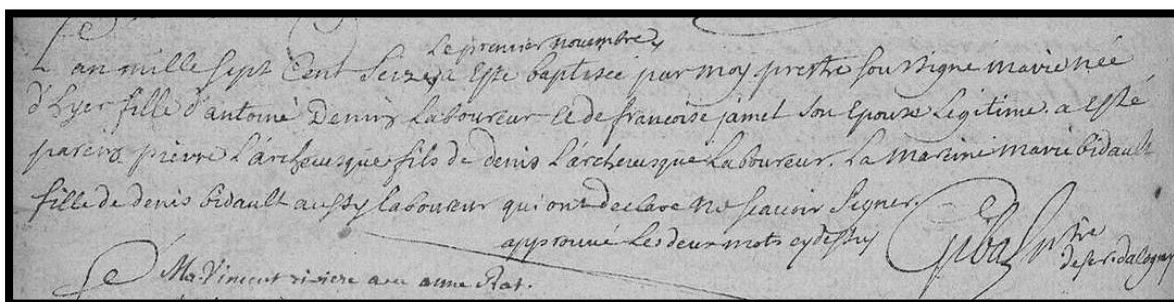 le premier novembre
L'an mille sept Cent Seize a Esté baptisée par moy prestre soussigné marie née
d'hyer fille d'antoine Denis Laboureur et de francoise jamet son Epouse Legitime. a Esté
parein pierre L'archevesque fils de denis L'archevesque Laboureur. La mareine marie bidault
fille de denis bidault aussy laboureur qui ont declaré ne scavoir Signer.
approuvé les deux mots cydessus
Mr. Vincent riviere avec anne